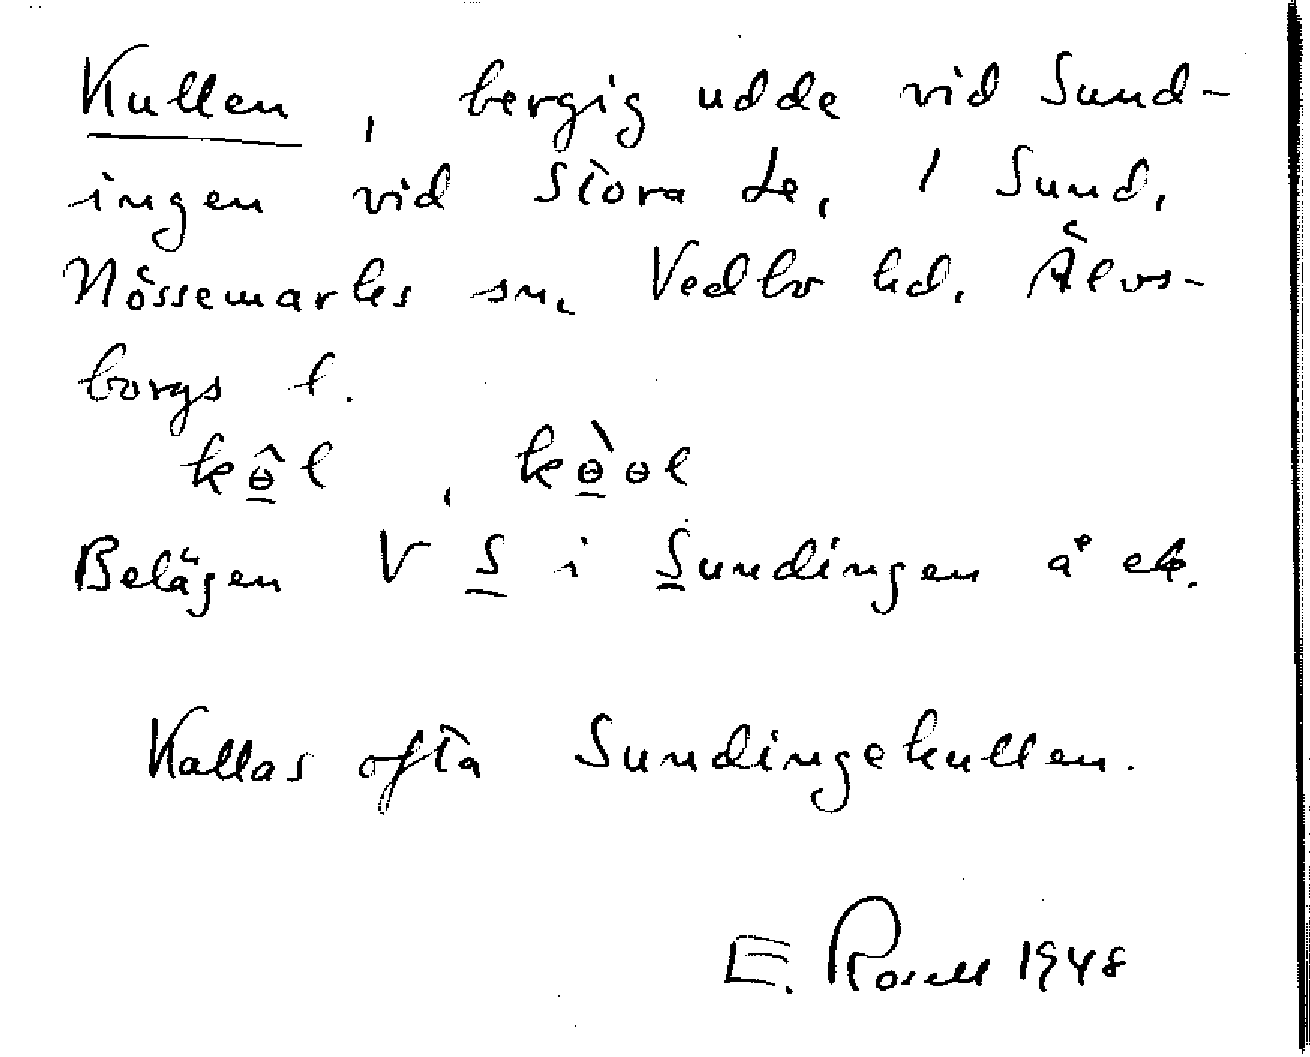 Kullen, bergig udde vid Sund-
ingen vid Stora Le, / Sund,
Nössemarks sn. Vedbo hd. Älvs-
borgs l.
kɵ̂l, kɵ̀ɵl
Belägen V S i Sundingen å ek.
Kallas ofta Sundingekullen.
E. Rosell 1948